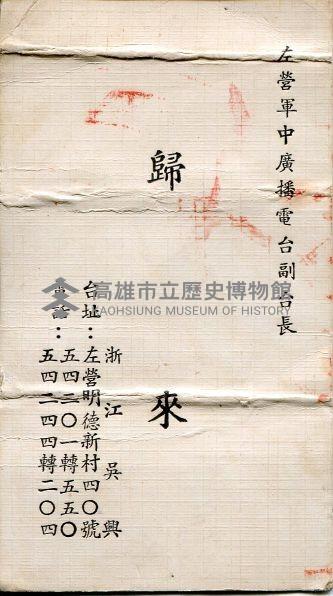 左營軍中廣播電台副台長
歸來
浙江吳興
台址：左營明德新村四〇號
電話：五四二〇一轉五五〇
五四二四四轉二〇四
高雄市立歷史博物館
KAOHSIUNG MUSEUM OF HISTORY